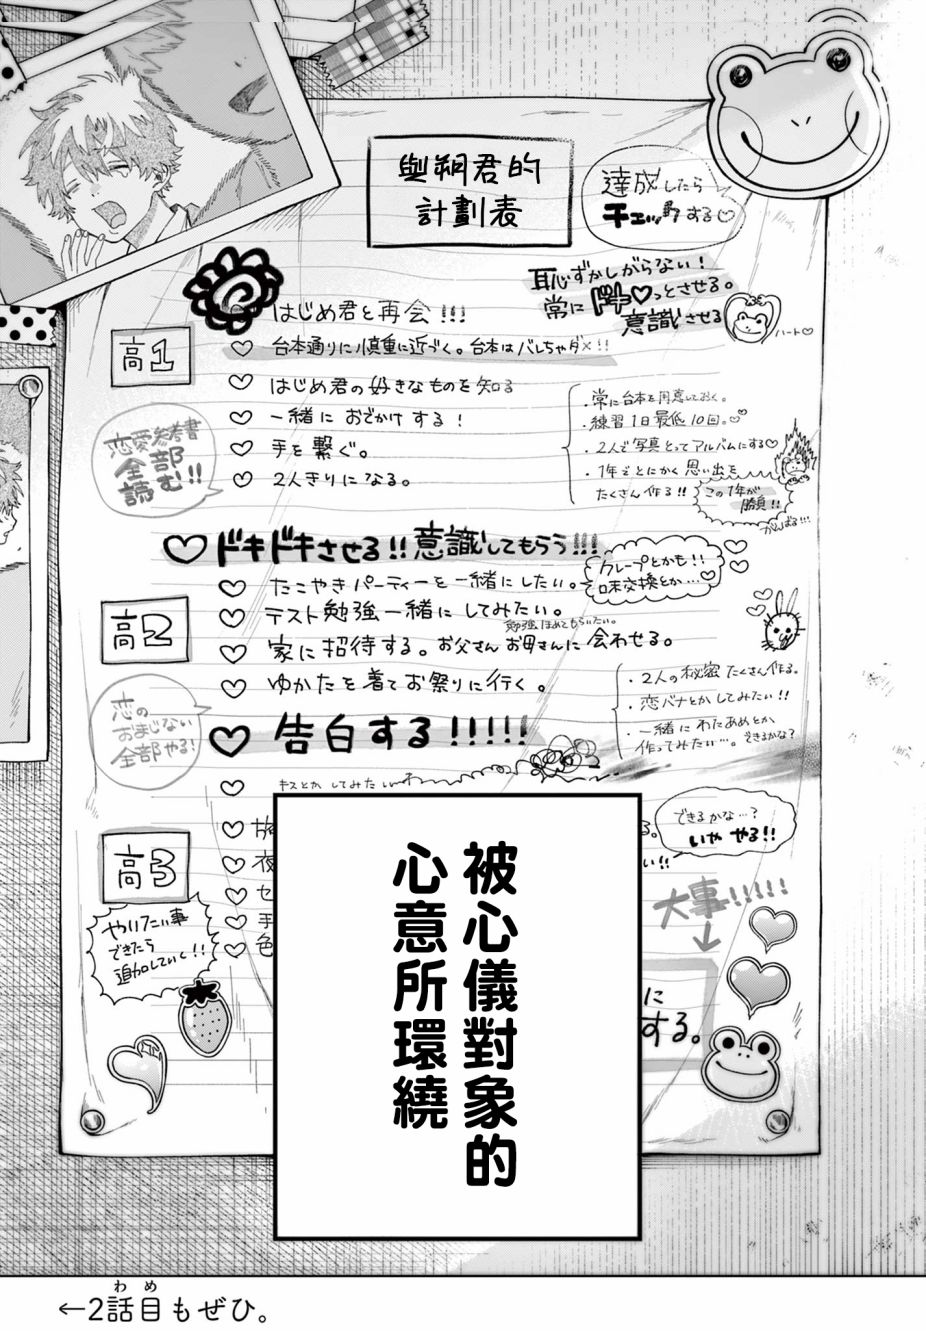 與朔君的
計劃表
達成したら
チェックする♡
恥ずかしがらない！
常にドキ♡っとさせる。
意識させる
ハート♡
はじめ君と再会!!!
高1
台本通りに慎重に近づく。台本はバレちゃダメ!!
はじめ君の好きなものを知る
一緒におでかけする！
手を繋ぐ。
2人きりになる。
恋愛参考書
全部
読む!!
・常に台本を用意しておく。
・練習1日最低10回。♡
・2人で写真とってアルバムにする♡
・1年ごとにかく思い出を
たくさん作る!!
この1年が
勝負!!
がんばる!!!
♡ドキドキさせる!!意識してもらう!!!
たこやきパーティーを一緒にしたい。
クレープとかも!!
味交換とか…♡
高2
テスト勉強一緒にしてみたい。
勉強ほめてもらいたい。
家に招待する。お父さんお母さんに会わせる。
ゆかたを着てお祭りに行く。
・2人の秘密たくさん作る。
・恋バナとかしてみたい!!
・一緒にわたあめとか
作ってみたい…。できるかな？
恋の
おまじない
全部やる！
♡告白する!!!!!
キスとかしてみたい
できるかな…？
いややる!!
高3
夜
セ
手
色
やりたい事
できたら
追加していく!!
大事!!!!!
に
する。
被心儀對象的
心意所環繞
わ め
←2話目もぜひ。